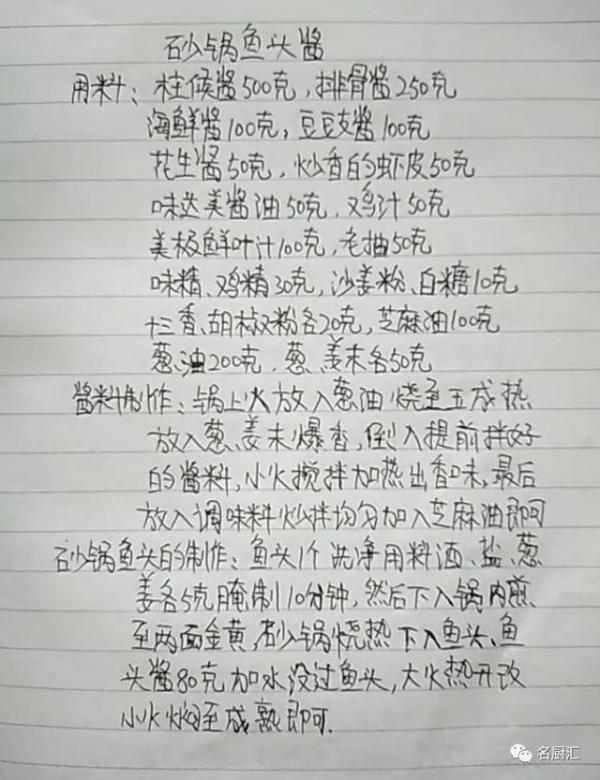 砂锅鱼头酱
用料：柱候酱500克，排骨酱250克
海鲜酱100克，豆豉酱100克
花生酱50克，炒香的虾皮50克
味达美酱油50克，鸡汁50克
美极鲜味汁100克，老抽50克
味精、鸡精30克，沙姜粉、白糖10克
十三香、胡椒粉各20克，芝麻油100克
葱油200克，葱、姜末各50克
酱料制作：锅上火放入葱油烧至五成热
放入葱、姜末爆香，倒入提前拌好
的酱料，小火搅拌加热出香味，最后
放入调味料炒拌均匀加入芝麻油即可
砂锅鱼头的制作：鱼头1个洗净用料酒、盐、葱
姜各5克腌制10分钟，然后下入锅内煎
至两面金黄，砂锅烧热下入鱼头、鱼
头酱80克加水没过鱼头，大火热开改
小火焖至成熟即可.
名厨汇